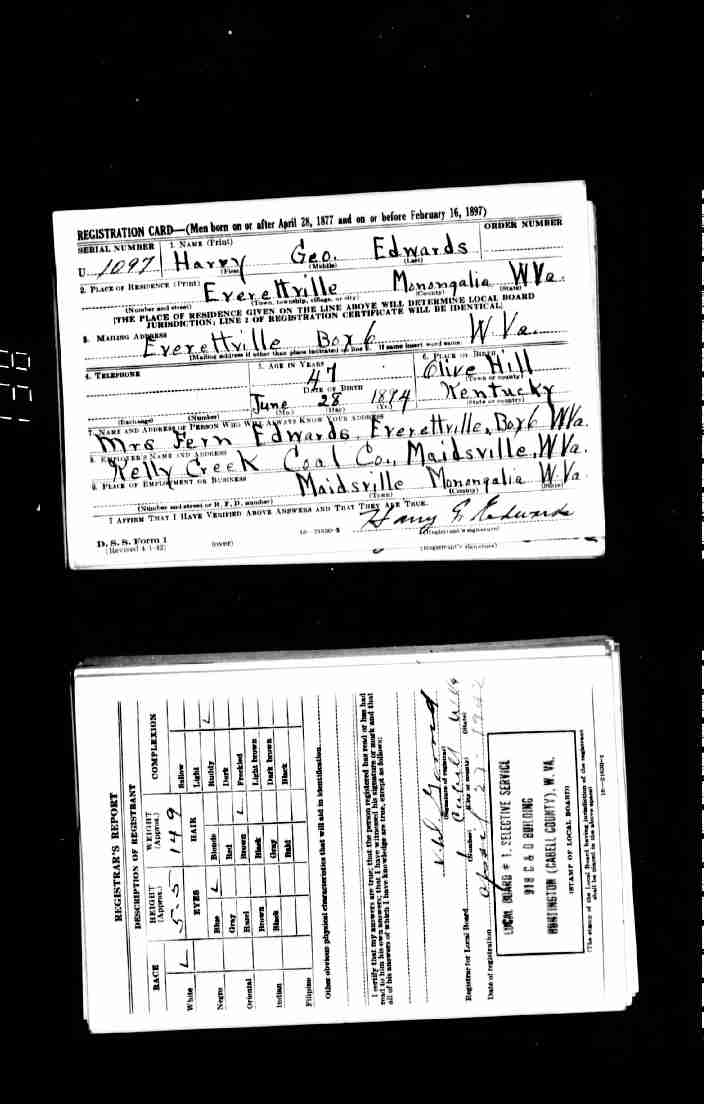 REGISTRATION CARD—(Men born on or after April 28, 1877 and on or before February 16, 1897)
SERIAL NUMBER 1. NAME (Print) ORDER NUMBER
U 1097 Harry Geo. Edwards
(First) (Middle) (Last)
2. PLACE OF RESIDENCE (Print)
Everettville Monongalia W Va.
(Number and street) (Town, township, village, or city) (County) (State)
[THE PLACE OF RESIDENCE GIVEN ON THE LINE ABOVE WILL DETERMINE LOCAL BOARD
JURISDICTION; LINE 2 OF REGISTRATION CERTIFICATE WILL BE IDENTICAL]
3. MAILING ADDRESS
Everettville Box 6 W. Va.
[Mailing address if other than place indicated on line 2. If same insert word same]
4. TELEPHONE 5. AGE IN YEARS 6. PLACE OF BIRTH
47 Olive Hill
DATE OF BIRTH (Town or county)
June 28 1894 Kentucky
(Exchange) (Number) (Mo.) (Day) (Yr.) (State or country)
7. NAME AND ADDRESS OF PERSON WHO WILL ALWAYS KNOW YOUR ADDRESS
Mrs Fern Edwards, Everettville, Box 6 W Va.
8. EMPLOYER'S NAME AND ADDRESS
Kelly Creek Coal Co., Maidsville, W Va.
9. PLACE OF EMPLOYMENT OR BUSINESS
Maidsville Monongalia W. Va.
(Number and street or R. F. D. number) (Town) (County) (State)
I AFFIRM THAT I HAVE VERIFIED ABOVE ANSWERS AND THAT THEY ARE TRUE.
Harry G. Edwards
D. S. S. Form 1 (Registrant's signature)
(Revised 4-1-42) (over) 16—21630-2
(Registrant's signature)
REGISTRAR'S REPORT
DESCRIPTION OF REGISTRANT
RACE HEIGHT (Approx.) WEIGHT (Approx.) COMPLEXION
5-5 149
White EYES HAIR Sallow
Light
Negro Blue Blonde Ruddy
Gray Red Dark
Oriental Hazel Brown Freckled
Brown Black Light brown
Indian Black Gray Dark brown
Bald Black
Filipino
Other obvious physical characteristics that will aid in identification
I certify that my answers are true; that the person registered has read or has had
read to him his own answers; that I have witnessed his signature or mark and that
all of his answers of which I have knowledge are true, except as follows:
(Signature of registrar)
Registrar for Local Board 1 Cabell W Va
(Number) (City or county) (State)
Date of registration April 27 1942
LOCAL BOARD # 1, SELECTIVE SERVICE
918 C & O BUILDING
HUNTINGTON (CABELL COUNTY), W. VA.
(STAMP OF LOCAL BOARD)
(The stamp of the Local Board having jurisdiction of the registrant
shall be placed in the above space)
16—21630-2